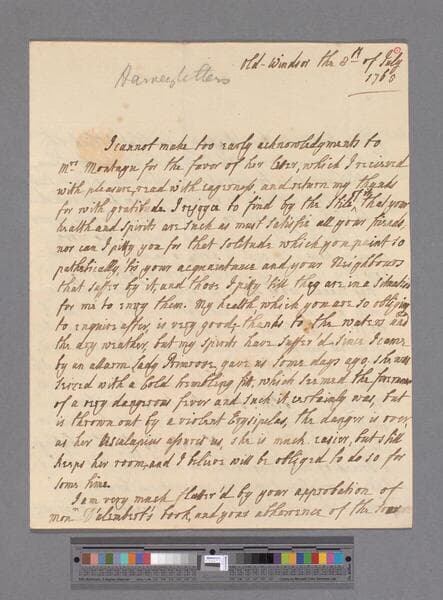 Harvey letters
old-Windsor the 8th of July
1762
I cannot make too early acknowledgments to
Mrs Montagu for the favor of her letter, which I recieved
with pleasure, read with eagerness, and return my thanks
for with gratitude. I rejoyce to find by the Stile of it, that your
health and Spirits are such as must satisfie all your friends,
nor can I pitty you for that solitude which you paint so
pathetically, 'tis your acquaintance and your Neighbours
that suffer by it, and those I pitty 'till they are in a situation
for me to envy them. My health which you are so obliging
to enquire after, is very good, thanks to the waters and
the dry weather, but my spirits have suffer'd since I came
by an allarm Lady Primrose gave us some days ago, she was
seized with a cold trembling fit, which seemed the forerunner
of a very dangerous fever and such it certainly was, but
is thrown out by a violent Erysipelas, the danger is over,
as her Esculapius assures us she is much easier, but still
keeps her room, and I believe will be obliged to do so for
some time.
I am very much flatter'd by your approbation of
monr D'alembert's book, and your abhorrence of the